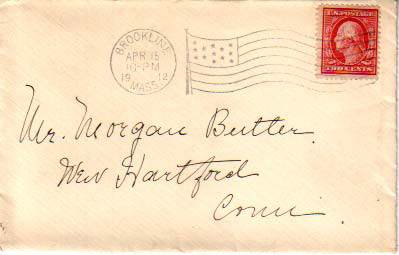 BROOKLINE
APR 15
10-PM
1912
MASS.
U.S. POSTAGE
TWO CENTS
Mr. Morgan Butler.
New Hartford
Conn.